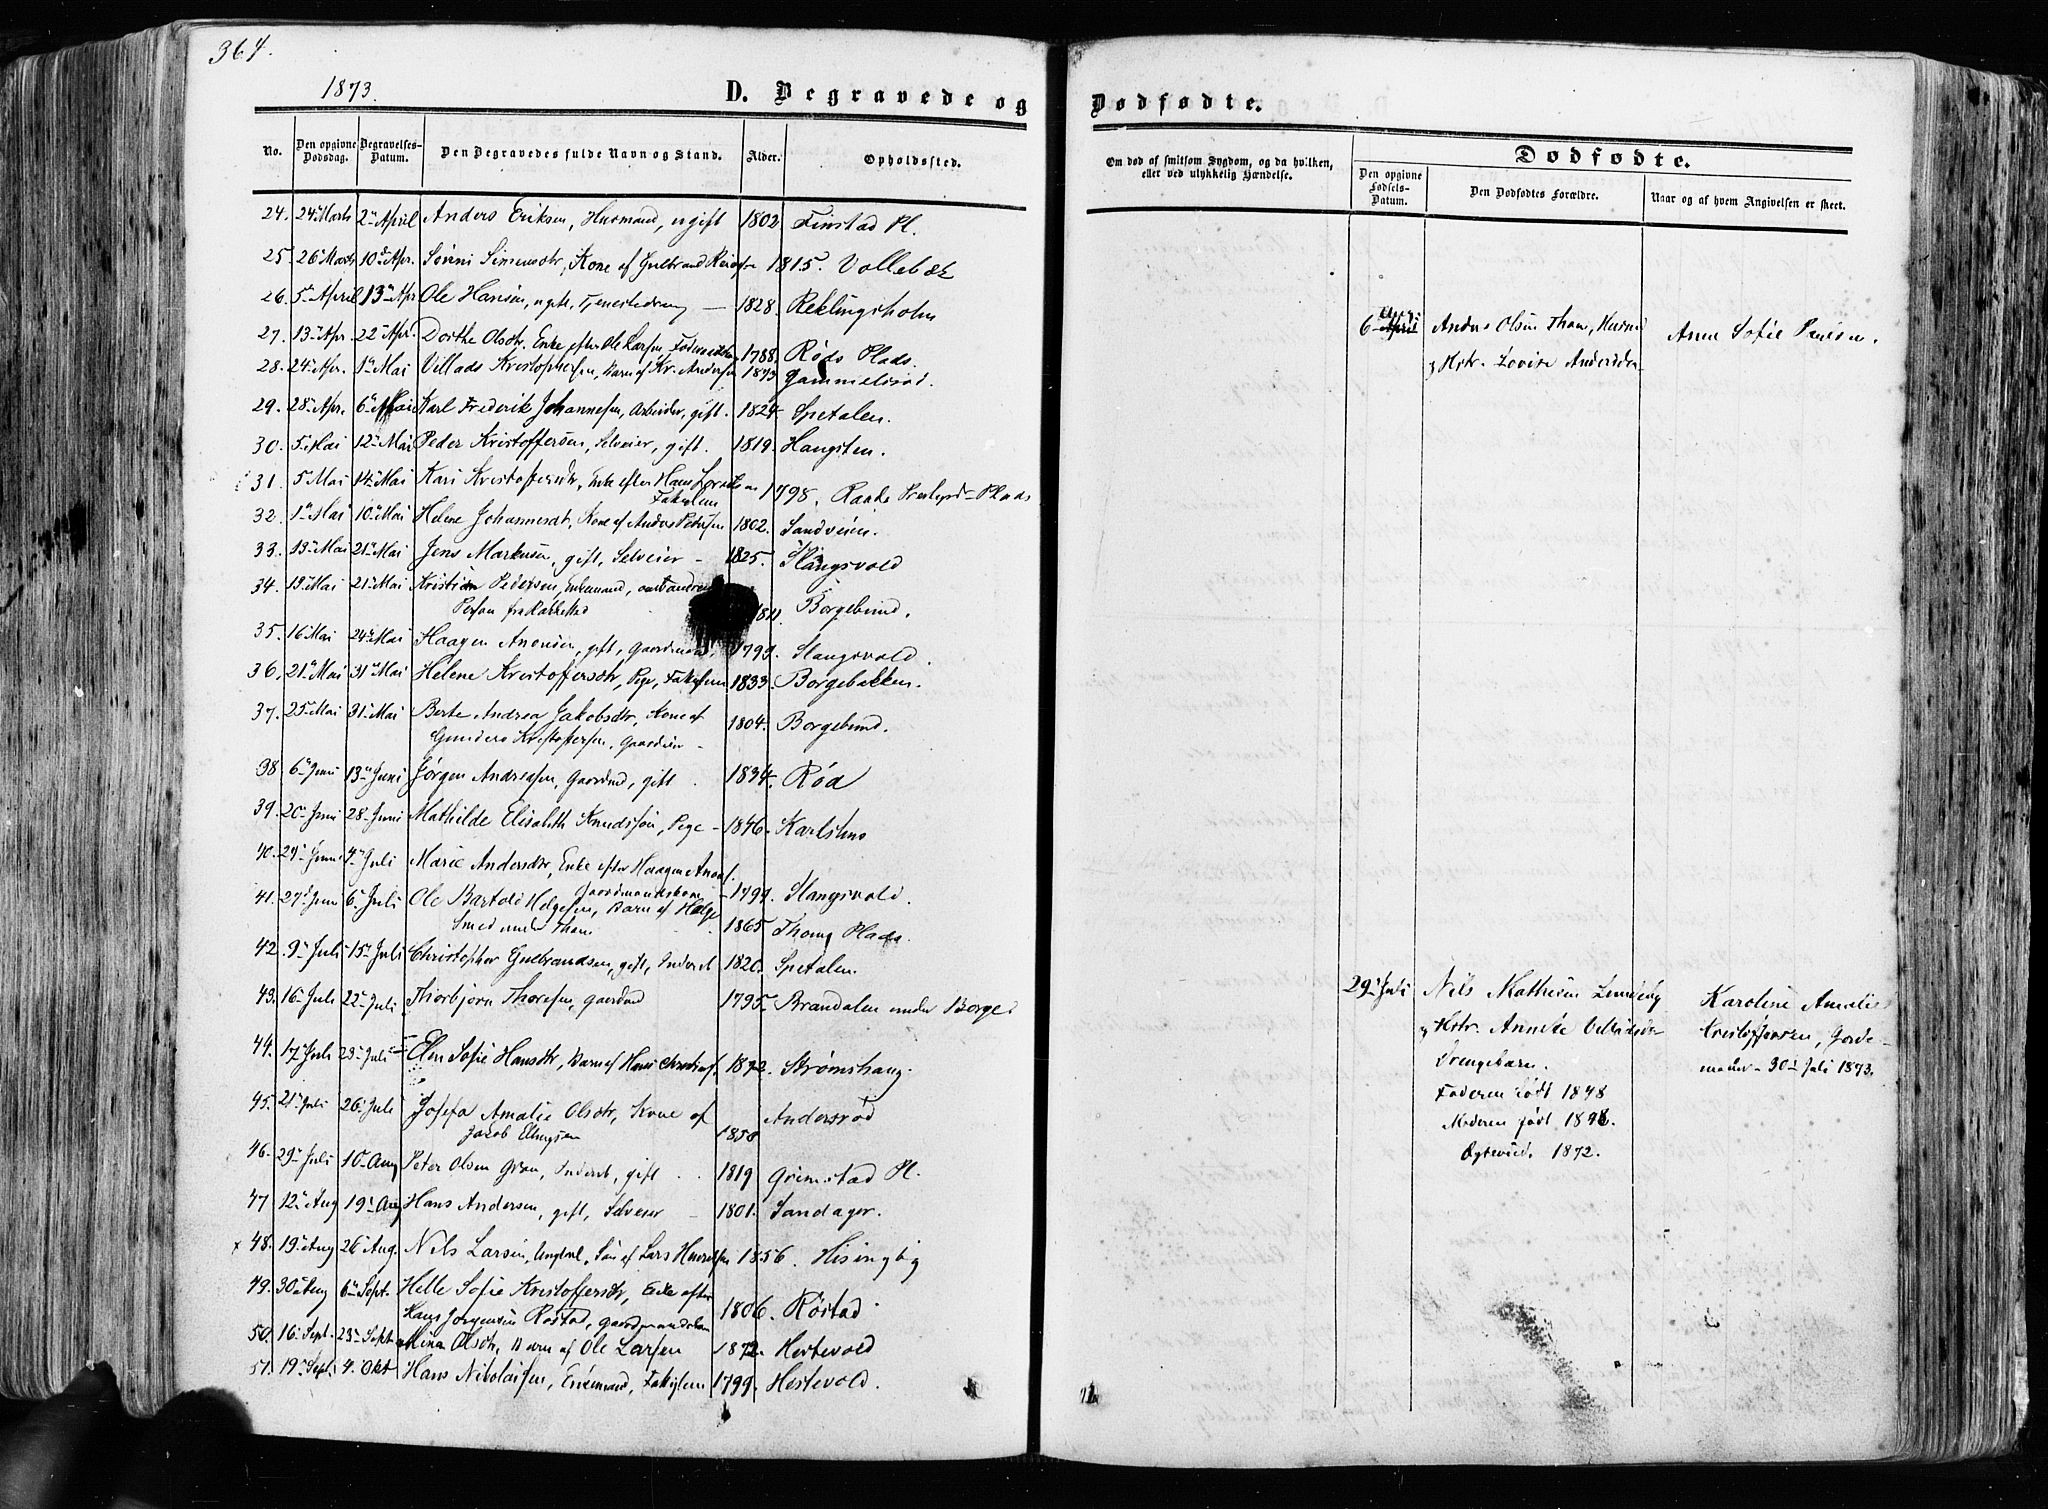 364.
1873.
D. Begravede og
Dødfødte.
No.
Den opgivne Dødsdag.
Begravelses-Datum.
Den Begravedes fulde Navn og Stand.
Alder.
Opholdssted.
Om død af smitsom Sygdom, og da hvilken, eller ved ulykkelig Hændelse.
Dødfødte.
Den opgivne Fødsels-Datum.
Den Dødfødtes Forældre.
Naar og af hvem Angivelsen er skeet.
24. 24 Marts 2 April Anders Eriksen, Husmand, ugift 1802 Finstad Pl.
25. 26 Marts 10 Apr. Simensdtr, Kone af Gulbrand 1815. Vollebæk
26. 5 April 13 Apr Ole Hansen, ugift, Tjenestedreng — 1828. Reklingsholm
27. 13 Apr. 22 Apr. Dorthe Olsdtr. Enke efter Ole Larsen, 1788. Røds Plads.
28. 24 Apr. 1 Mai Villads Kristophersen, Barn af Kr. Andersen 1873 Gammelsrød.
29. 28 Apr. 6 Mai Karl Frederik Johannesen, Arbeider, gift. 1824. Spetalen.
30. 5 Mai 12 Mai Peder Kristoffersen, Selveier, gift. 1819. Haugsten.
31. 5 Mai 14 Mai Kari Kristoffersdtr, Enke efter Hans
Fattiglem 1798. Raade Plads
32. 1 Mai 10 Mai Helene Johannesdt, Kone af Anders Petersen 1802. Sandveien.
33. 13 Mai 21 Mai Jens Markusen, gift, Selveier — 1825. Slangsvold
34. 13 Mai 21 Mai Kristian Pedersen, Enkemand,
Person fra Rakkestad 1811. Borgebund.
35. 16 Mai 24 Mai Haagen Anonsen, gift, Gaardmand, 1793. Slangsvold.
36. 21 Mai 31 Mai Helene Kristoffersdtr, Pige, 1833. Borgebakken.
37. 25 Mai 31 Mai Berte Andrea Jakobsdtr, Kone af
Gunders Kristoffersen, Gaardeier — 1804. Borgebund.
38. 6 Juni 13 Juni Jørgen Andreasen, Gaardmd, gift. 1834. Rød
39. 20 Juni 28 Juni Mathilde Elisabeth Knudssøn, Pige — 1846. Karlshus
40. 24 Juni 4 Juli Marie Andersdtr, Enke efter Haagen Anons.
Gaardmandskone 1794. Slangsvold.
41. 27 Juni 6 Juli Ole Bartold Helgesen, Barn af Helge
Smed under Thom 1865 Thoms Plads.
42. 9 Juli 15 Juli Christopher Gulbrandsen, gift, Inderst 1820. Spetalen
43. 16 Juli 22 Juli Thorbjørn Thoresen, Gaardmd 1795. Brandalen under Borge
44. 17 Juli 23 Juli Elen Sofie Hansdtr, Barn af Hans 1872. Strømshaug.
45. 21 Juli 26 Juli Josefa Amalie Olsdtr, Kone af
Jacob Ellingsen 1850 Andersrød
46. 29 Juli 10 Aug Peter Olsen Gran, Inderst, gift . . 1819 Grimstad Pl.
47 12 Aug 19 Aug Hans Andersen, gift, Selveier — 1801. Sandager.
x 48. 19 Aug 26 Aug. Nils Larsen, Ungkarl, Søn af Lars 1856. Hisingby
49. 30 Aug 6 Sept. Helle Sofie Kristoffersdtr, Enke efter
Hans Jørgensen Røstad, 1806. Røstad.
50. 16 Sept. 23 Sept. Olsdtr, Barn af Ole Larsen 1872. Hestevold
51. 19 Sept. 4. Okt Hans Nikolaisen, Enkemand, Fattiglem 1799. Hestevold.
6 April Anders Olsen Thom, Husmd
Hstr. Lovise Andersdtr
Anne Sofie Paulsen.
29 Juli Nils Mathisen Lundeby
Hstr. Annette
Drengebarn.
Faderen født 1848
Moderen født 1848.
Egteviede. 1872.
Karoline Amalie
Kristoffersen, Jorde-
moder — 30 Juli 1873.